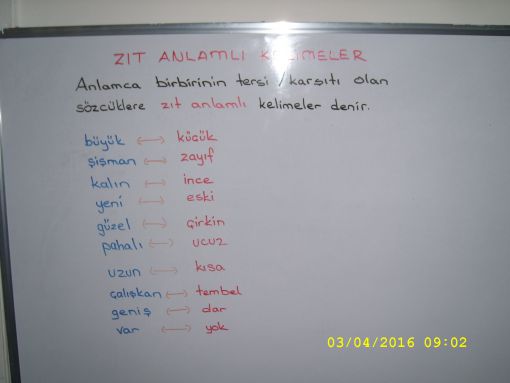 ZIT ANLAMLI KELİMELER
Anlamca birbirinin tersi / karşıtı olan
sözcüklere zıt anlamlı kelimeler denir.
büyük ↔ küçük
şişman ↔ zayıf
kalın ↔ ince
yeni ↔ eski
güzel ↔ çirkin
pahalı ↔ ucuz
uzun ↔ kısa
çalışkan ↔ tembel
geniş ↔ dar
var ↔ yok
03/04/2016 09:02